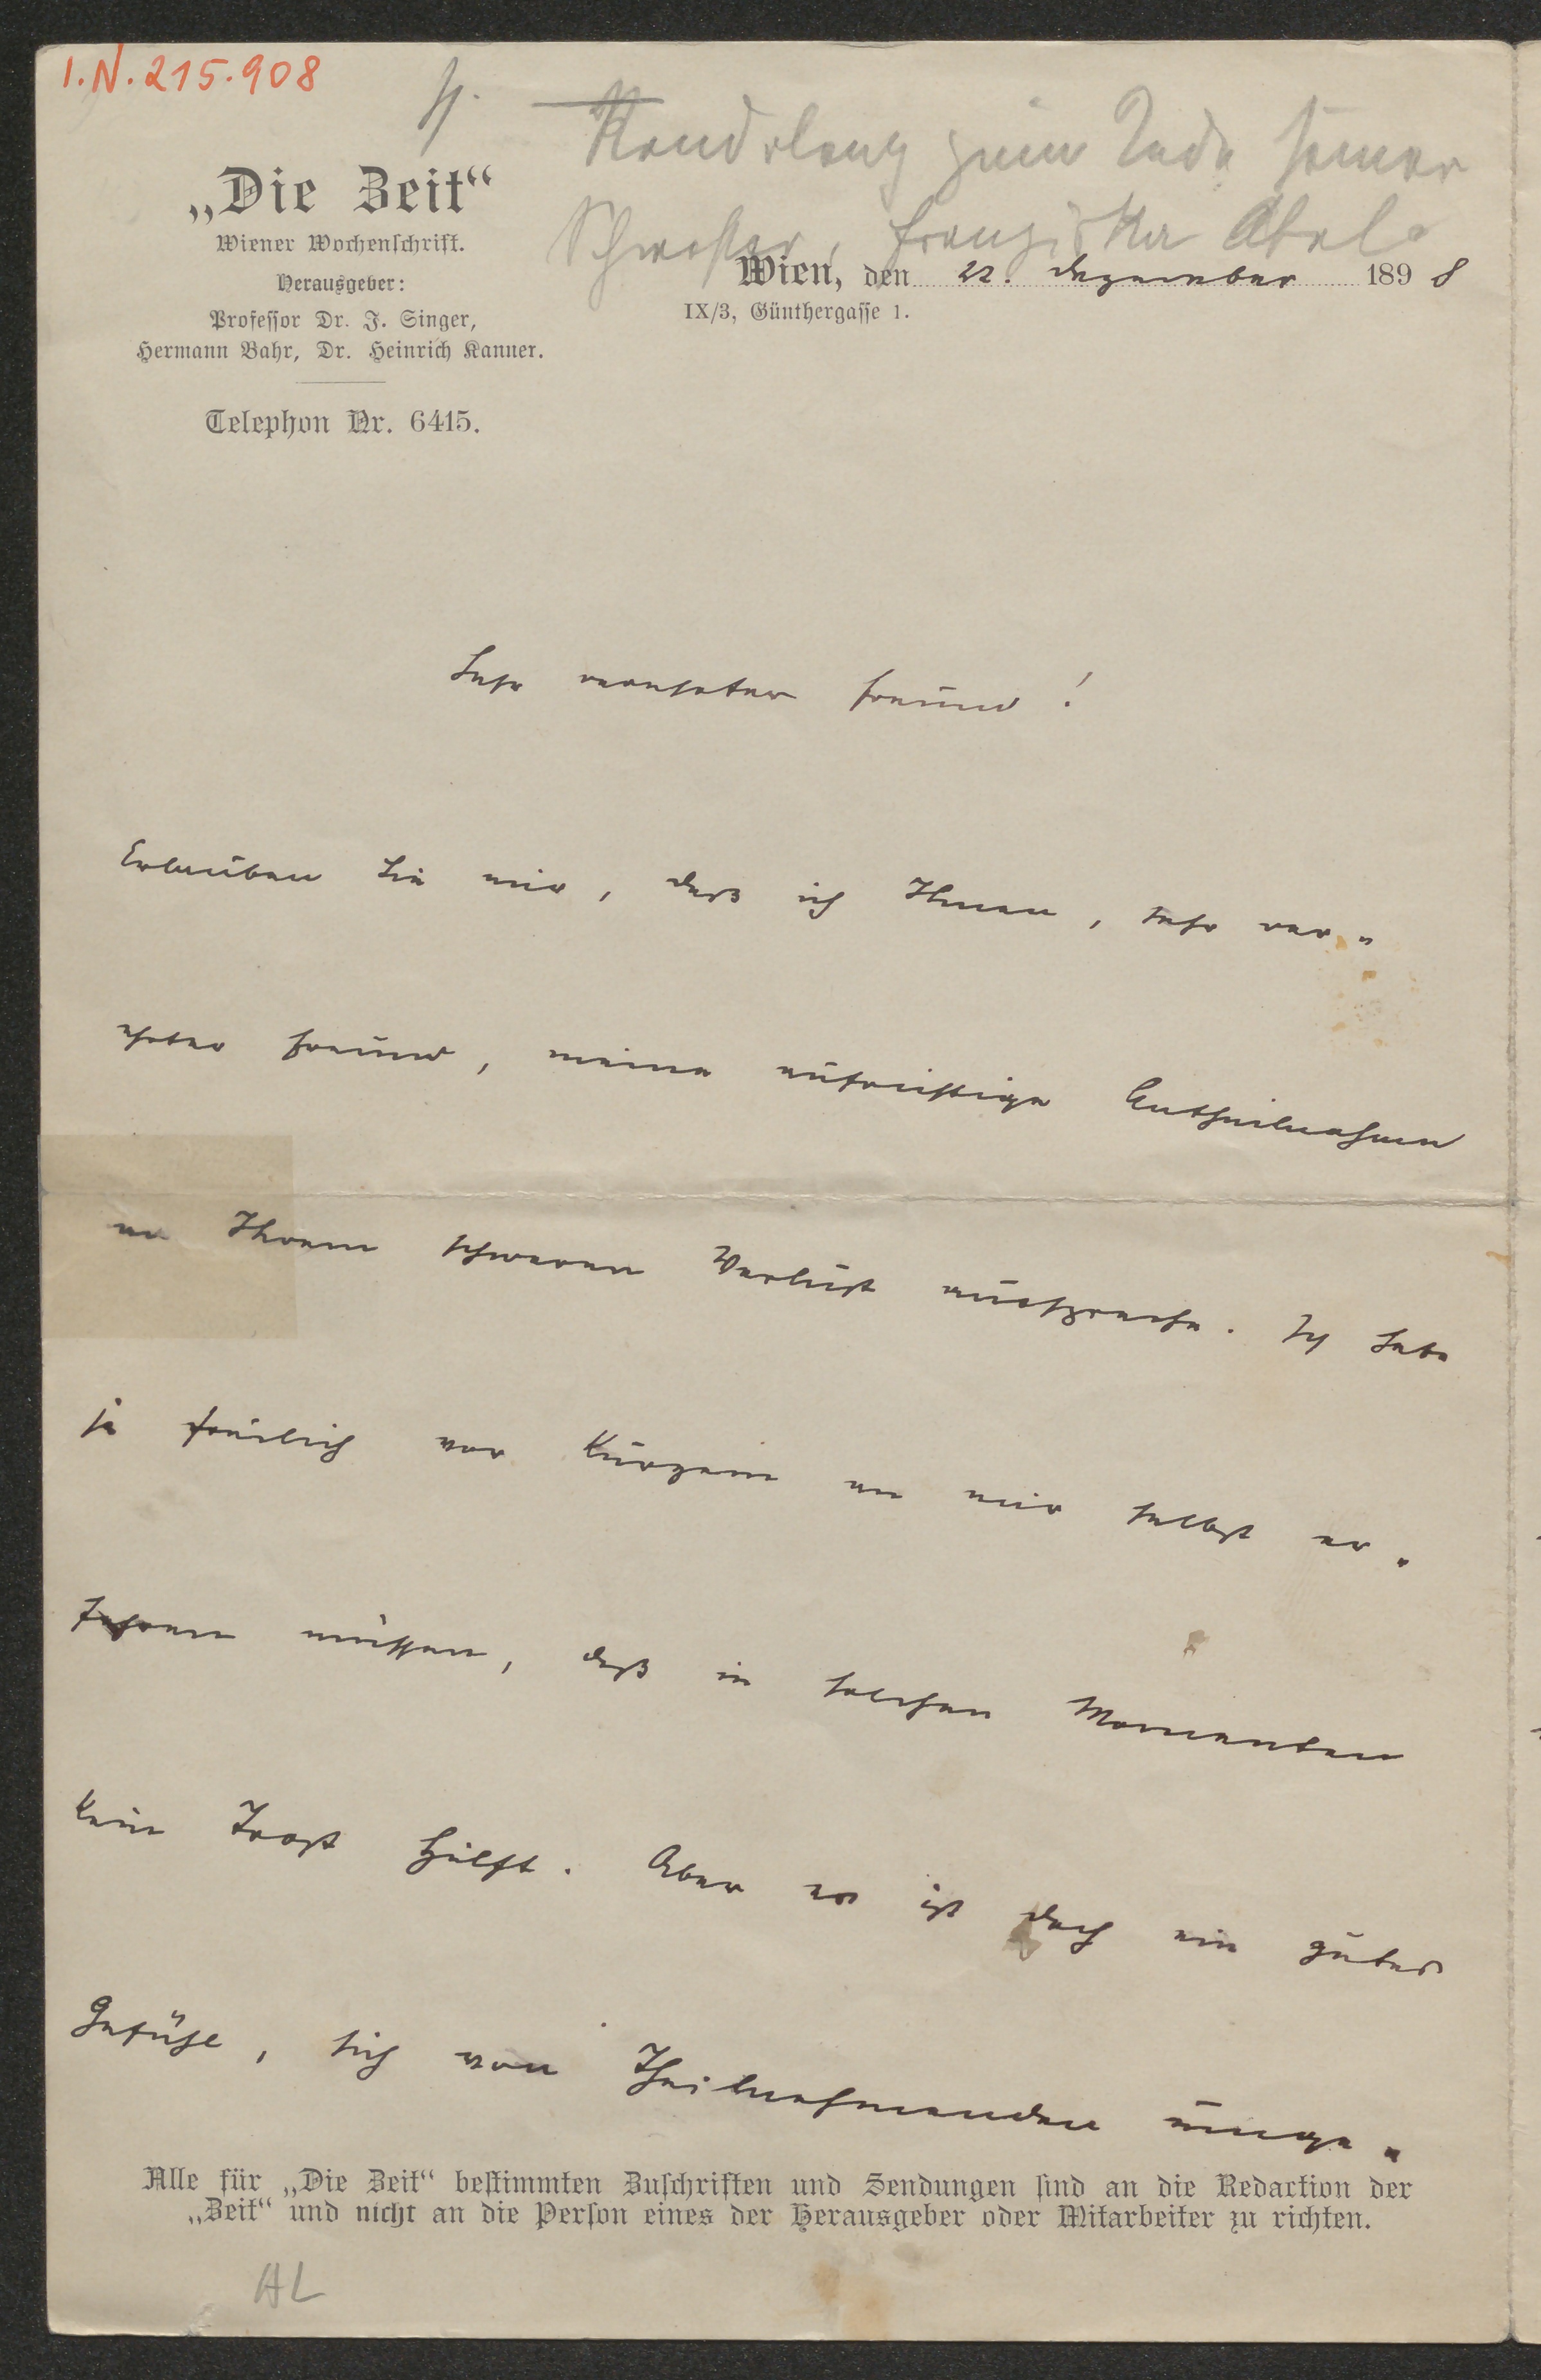 I.N. 215.908
„Die Zeit“
Wiener Wochenschrift.
Herausgeber:
Professor Dr. J. Singer,
Hermann Bahr, Dr. Heinrich Kanner.
Telephon Nr. 6415.
Kondolenz zum Tode seiner
Schwester, Franziska Abel
Wien, den 22. Dezember 1898
IX/3, Günthergasse 1.
Sehr verehrter Freund!
Erlauben Sie mir, daß ich Ihnen, sehr ver-
ehrter Freund, meine aufrichtige Antheilnahme
an Ihrem schweren Verlust ausspreche. Ich habe
ja freilich vor Kurzem an mir selbst er-
fahren müssen, daß in solchen Momenten
kein Trost hilft. Aber es ist doch ein gutes
Gefühl, sich von Theilnehmenden umge-
Alle für „Die Zeit“ bestimmten Zuschriften und Sendungen sind an die Redaction der
„Zeit“ und nicht an die Person eines der Herausgeber oder Mitarbeiter zu richten.
AL